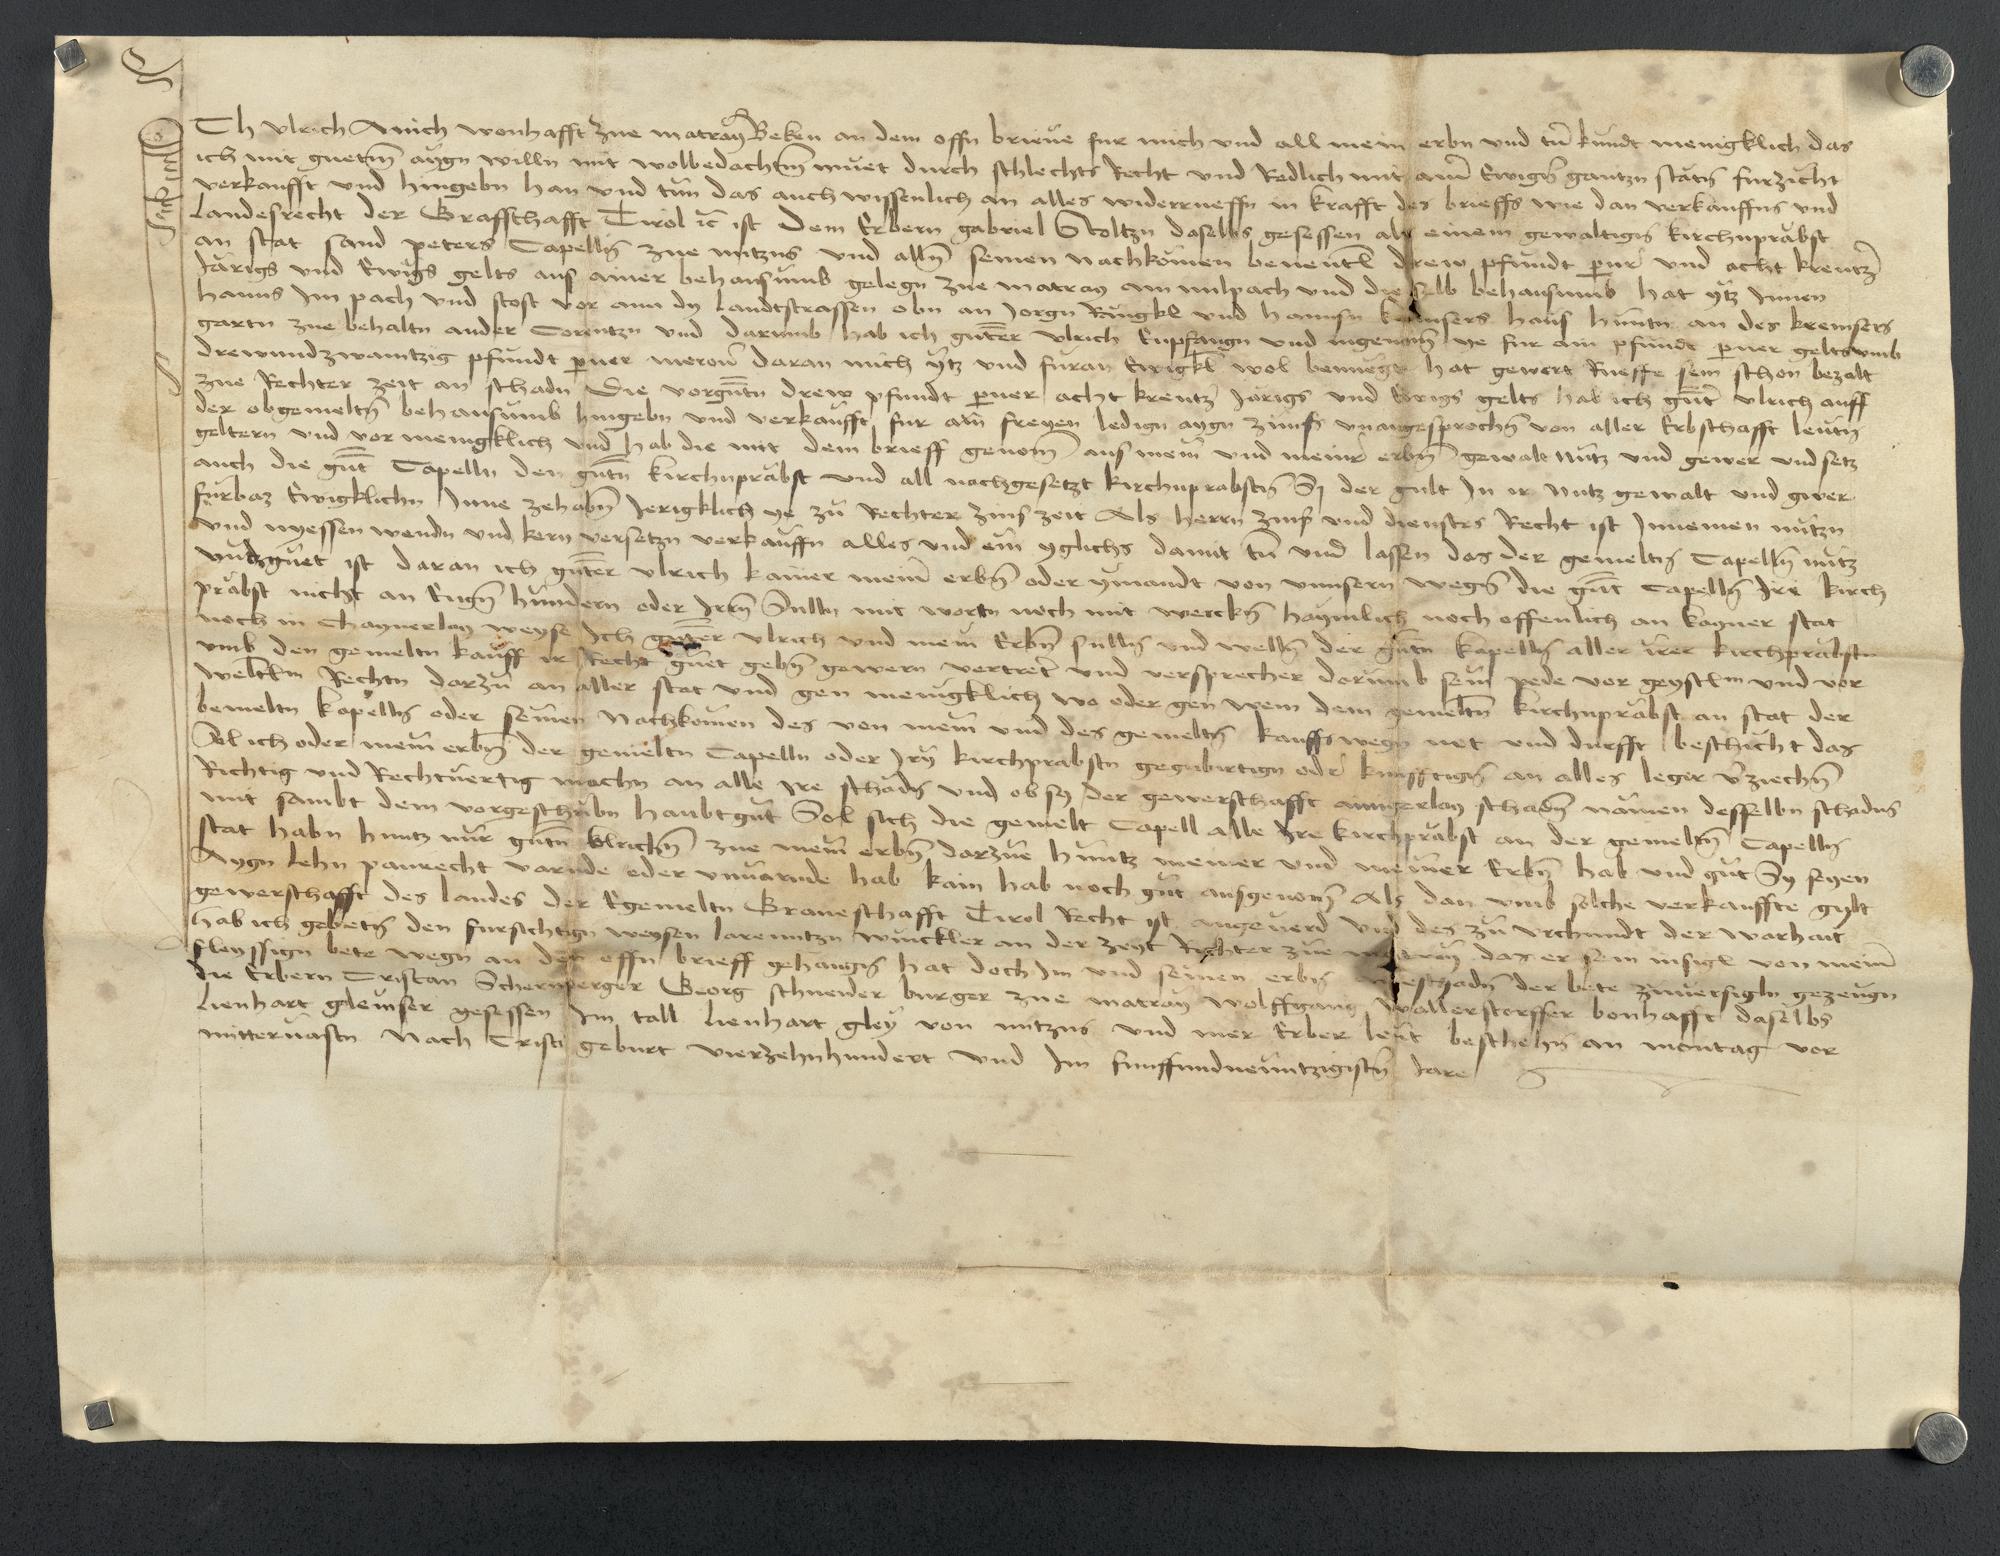 Ich Ulrich Amich wonhafft zue matray Beken an dem offn brieve fur mich und all mein erbn und tun kundt menigklich das
ich mit guetm aygn willn mit wolbedachtm muet durch schlechts Recht und Redlich mit aim Ewign gantzn statn furzicht
verkaufft und hingebn han und tun das auch wissenlich an alles widerrueffn in krafft des brieffs wie dan verkauffns und
Landesrecht der Graffschafft Tirol ꝛc ist Dem Erbern gabriel Stoltzn daselbs gesessen als einem gewaltign kirchnprabst
an stat sand peters Capelln zue mitzns und alln seinen nachkomen benentl drew pfundt perner und acht kreutzer
Jarigs und Ewigs gelts aus ainer behausumb gelegn zue matray am milpach und dieselb behausumb hat ytz Innen
hanns Im pach und stost vor ann dy Landtstrassen obn an Jorgn Ringkl und hannsn kremsers haus hinntn an des kremsers
gartn zue behaltn ander Corentzn und darumb hab ich gnter ulrich Enpfangn und ingenom ye fur ain pfundt perner gelts umb
drewundzwaintzig pfundt perner meroner daran mich ytz und furan Ewigkl wol benuegt hat gewert Rueffe sein schon bezalt
zue Rechter zeit an schadn Die vorgntn drew pfundt perner acht kreutzer Jarigs und Ewigs gelts hab ich gnter ulrich auff
der obgemeltn behausumb hingebn und verkaufft fur ain freyen ledign aygn zinss unangesprochn von aller Erbschafft leutn
geltern und vor menigklich und hab die mit dem brieff genom aus mein und meinr erbn gewalt nutz und gewer und setz
auch die gnt Capelln den gntn kirchnprabst und all nachgesetzt kirchnprabstn Sy der gult In ir nutz gewalt und gwer
furbaz Ewigklichn Inne zehabn Jerigklich ye zu Rechter zins zeit Als herrn zinss und dienstes Recht ist Innemen nutzn
und nyessen wendn und kern versetzn verkauffn alles und ein yglichs damit tun und lassen das der gemeltn Capelln nutz
und guet ist daran ich gnter ulrich kainer meiner erbn oder ymandt von unnsern wegn die gnt Capelln Iri kirch
prabst nicht an Engn hindern oder Irrn Sulln mit wortn noch mit werckn haymlich noch offenlich an kayner stat
noch in Chaynerlay weyse Ich gnter ulrich und mein Erbn sulln und welln der gntn kapelln aller irer kirchprabstn
umb den gemeltn kauff ir Recht guet gebn gewern vertreter und versprecher darumb sein pede vor geystlm und vor
weltlm Rechtn darzu an aller stat und gen menigklich wo oder gen wem dem gemeltn kirchnprabst an stat der
bemeltn kapelln oder seinen Nachkomen des von mein und des gemeltn kauffs wegn not und durfft beschicht das
Sol ich oder mein erbn der gemeltn Capelln oder Iry kirchprabstn gegnbirtign oder kunfftign an alles leger verziechn
Richtig und Rechtvertig machn an alle Ire schadn und ob sy der gewerschafft ainigerlay schadn namen desselbn schadns
mit sambt dem vorgeschribn haubtgut Sol sich die gemelt Capell alle Ire kirchprabst an der gemeltn Capelln
stat habn hintz mir gntn Ulrichn zue mein erbn darzue hintz meiner und meiner Erbn hab und gut Sy seyen
Aygn Lehn paurecht varnde oder unvarnde hab kain hab noch gut ausgenom Als dan umb solche verkauffte gylt
gewerschafft des landes der Egemeltn Graveschafft Tirol Recht ist angeverd Und des zu urchundt der warhait
hab ich gebetn den fursichtign weysen larenntzn winckler an der zeyt Richter zue matray das er sein insigl von meiner
fleyssign bete wegn an den offn brieff gehangn hat doch Im und seinen erbn schadn der bete zuversigln gezeugn
die Erbern Cristan Schernperger Georg schneider burger zue matray Wolffganng Wallerstorffer bonhafft daselbs
Lienhart gleinser gesessen Im tall Lienhart gley von mitzns und mer Erber leut beschehn an montag vor
mittervastn Nach Cristi geburt vierzehnhundert und Im funffundneuntzigistn Jare